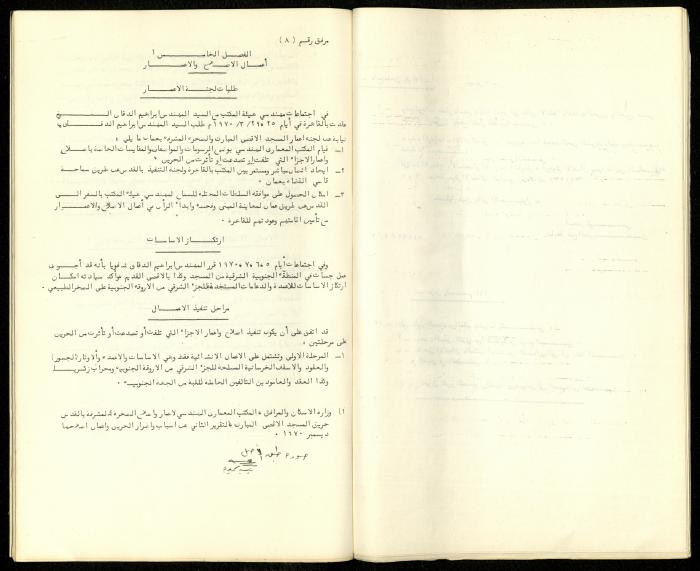 مرفق رقم (٨)
الفصل الخامس ١
أعمال الاصلاح والاعمار
طلبات لجنة الاعمار
في اجتماعات مهندسي هيئة المكتب مع السيد المهندس ابراهيم الدقاق التي
عقدت بالقاهرة في أيام ٢٥، ٢٩/٣/١٩٧٠م طلب السيد المهندس ابراهيم الدقاق
نيابة عن لجنة اعمار المسجد الاقصى المبارك والصخرة المشرفة بعمان ما يلي :
١– قيام المكتب المعماري الهندسي بوضع الرسومات والمواصفات والمقايسات الخاصة باصلاح
واعمار الاجزاء التي تلفت أو تصدعت أو تأثرت من الحريق .
٢– ايجاد اتصال مباشر ومستمر بين المكتب بالقاهرة ولجنة التنفيذ بالقدس عن طريق سماحة
قاضي القضاة بعمان .
٣– امكان الحصول على موافقة السلطات المحتلة للسماح لمهندسي هيئة المكتب بالسفر الى
القدس عن طريق عمان لمعاينة المبنى وفحصه وابداء الرأي في أعمال الاصلاح والاعمار
مع تأمين اقامتهم وعودتهم للقاهرة .
ارتكاز الاساسات
وفي اجتماعات أيام ٥، ٦، ٧، ١٩٧٠ قرر المهندس ابراهيم الدقاق شفويا بأنه قد أجرى
عمل جسات في المنطقة الجنوبية الشرقية من المسجد وكذا بالاقصى القديم وأكد سيادته امكان
ارتكاز الاساسات للاعمدة والدعامات المستجدة للجزء الشرقي من الاروقة الجنوبية على الصخر الطبيعي .
مراحل تنفيذ الاعمال
قد اتفق على أن يكون تنفيذ اصلاح واعمار الاجزاء التي تلفت أو تصدعت أو تأثرت من الحريق
على مرحلتين :
١– المرحلة الاولى وتشتمل على الاعمال الانشائية فقط وهي الاساسات والاعمدة والاوتار (الجسور)
والعقود والاسقف الخرسانية المسلحة للجزء الشرقي من الاروقة الجنوبية ومحراب زكريا
وكذا العقد والعامودين التالفين الحاملة للقبة من الجهة الجنوبية .
١) وزارة الاسكان والمرافق ، المكتب المعماري الهندسي لاعمار واصلاح الصخرة المشرفة بالقدس
حريق المسجد الاقصى المبارك ، التقرير الثاني عن اسباب واضرار الحريق واعمال اصلاحها
ديسمبر ١٩٧٠ .
صورة طبق الاصل